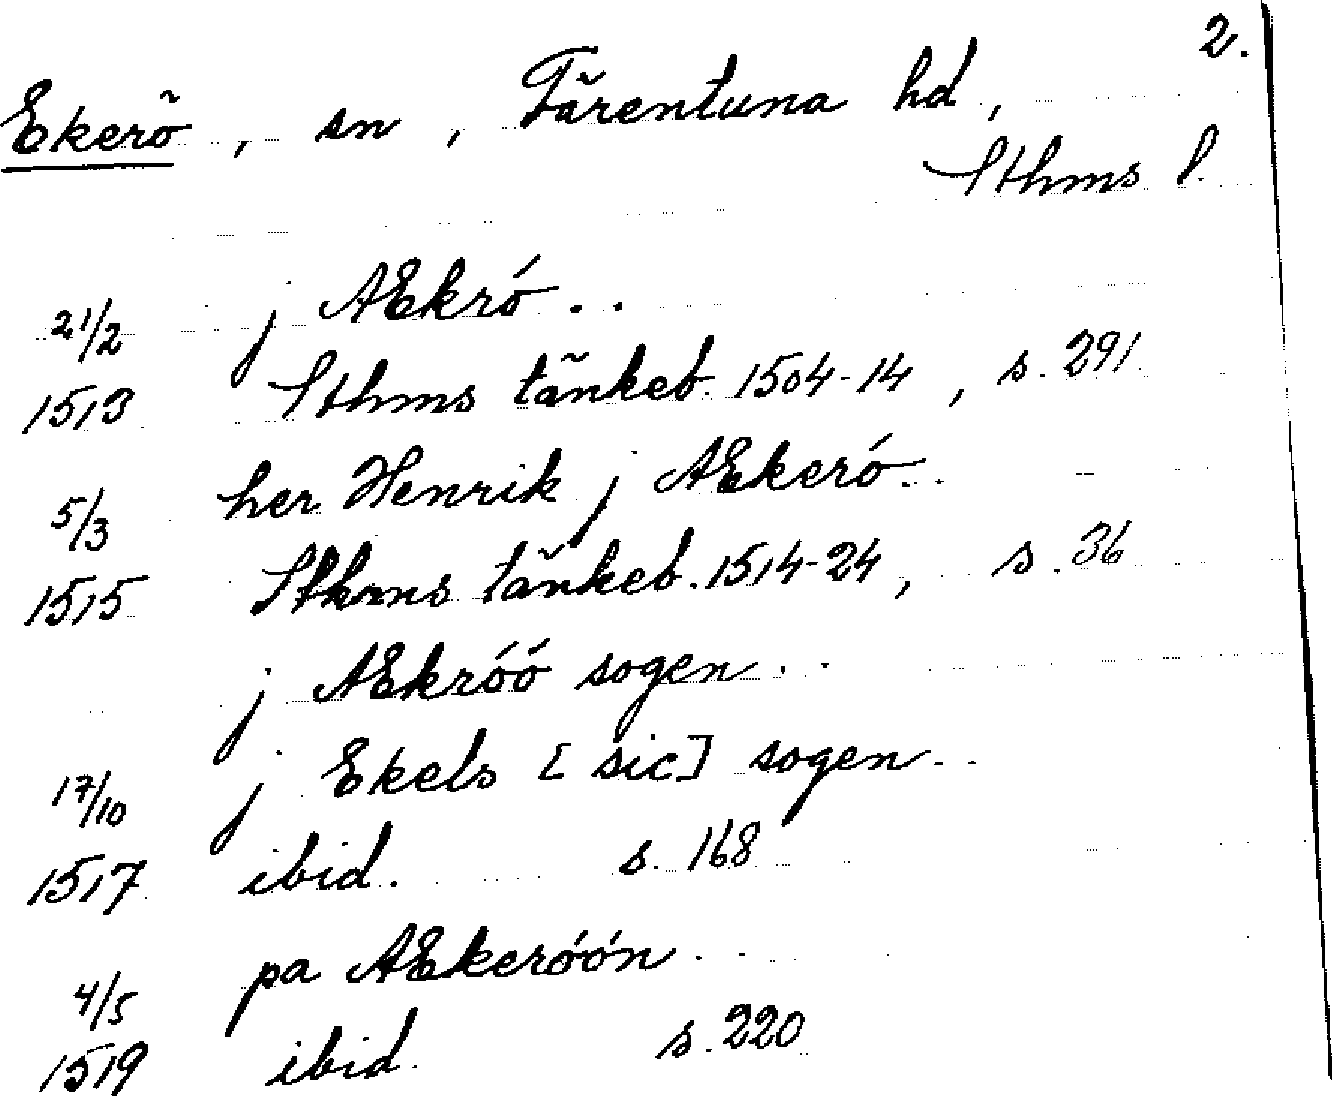 2.
Ekerö, sn, Färentuna hd,
Sthms l.
21/2 j Æekró..
1513 Sthms tänkeb. 1504-14, s. 291
5/3 her Henrik j Æekeró..
1515 Sthms tänkeb. 1514-24, s. 36
j Æekróó sogen..
17/10 j Ekels [sic] sogen..
1517 ibid. s. 168
4/5 pa Æekeróón..
1519 ibid. s. 220